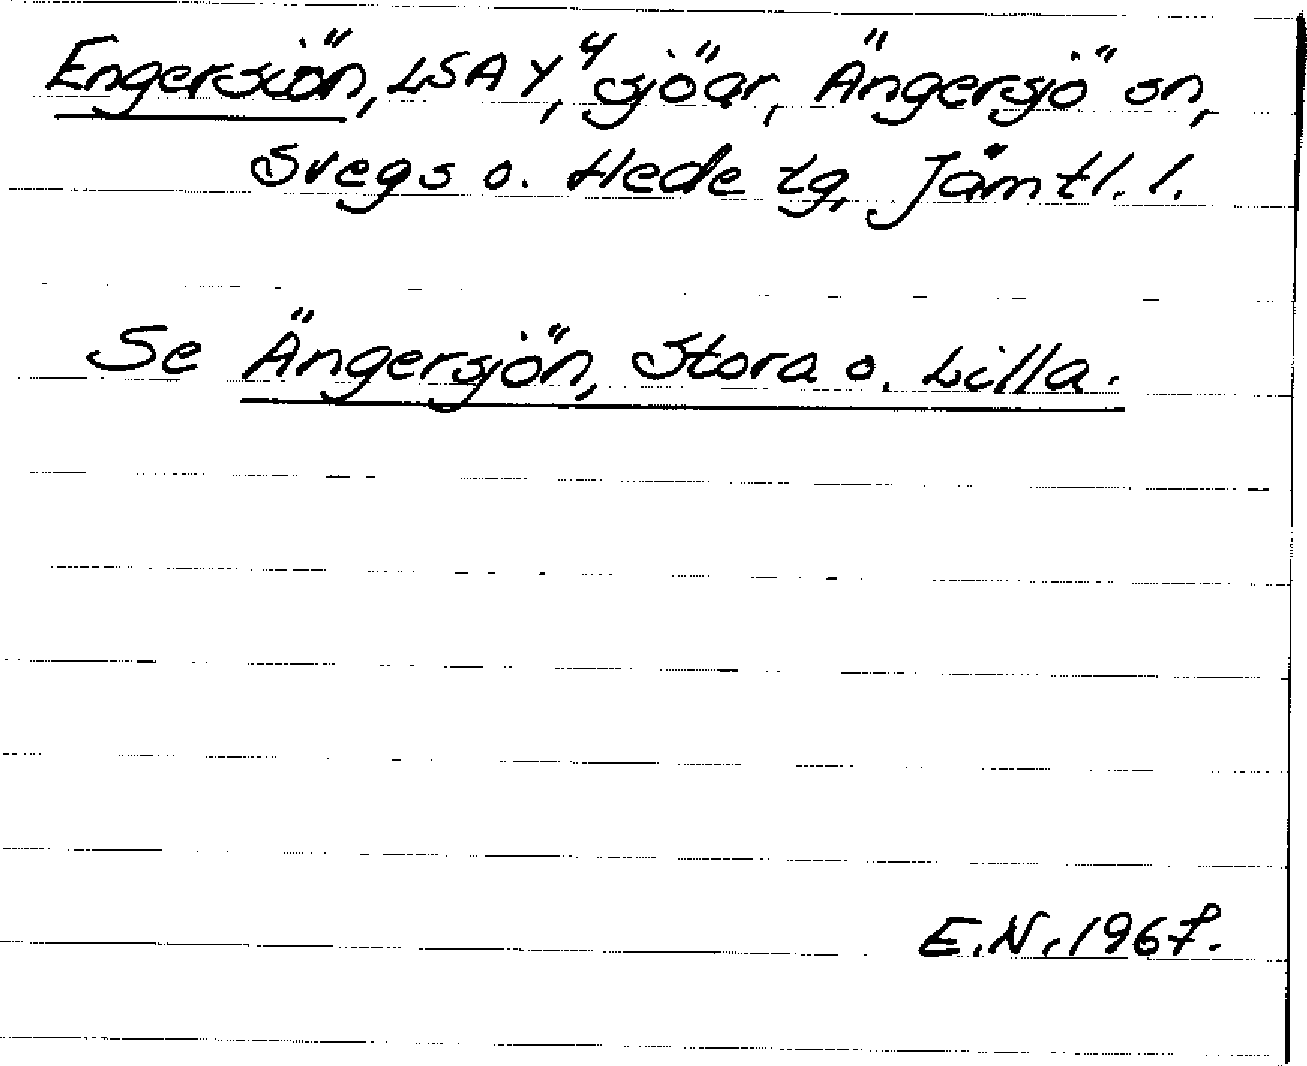 Engersiön, LSA Y⁴, sjöar, Ängersjö sn,
Svegs o. Hede tg, Jämtl. l.
Se Ängersjön, Stora o. Lilla.
E.N. 1967.